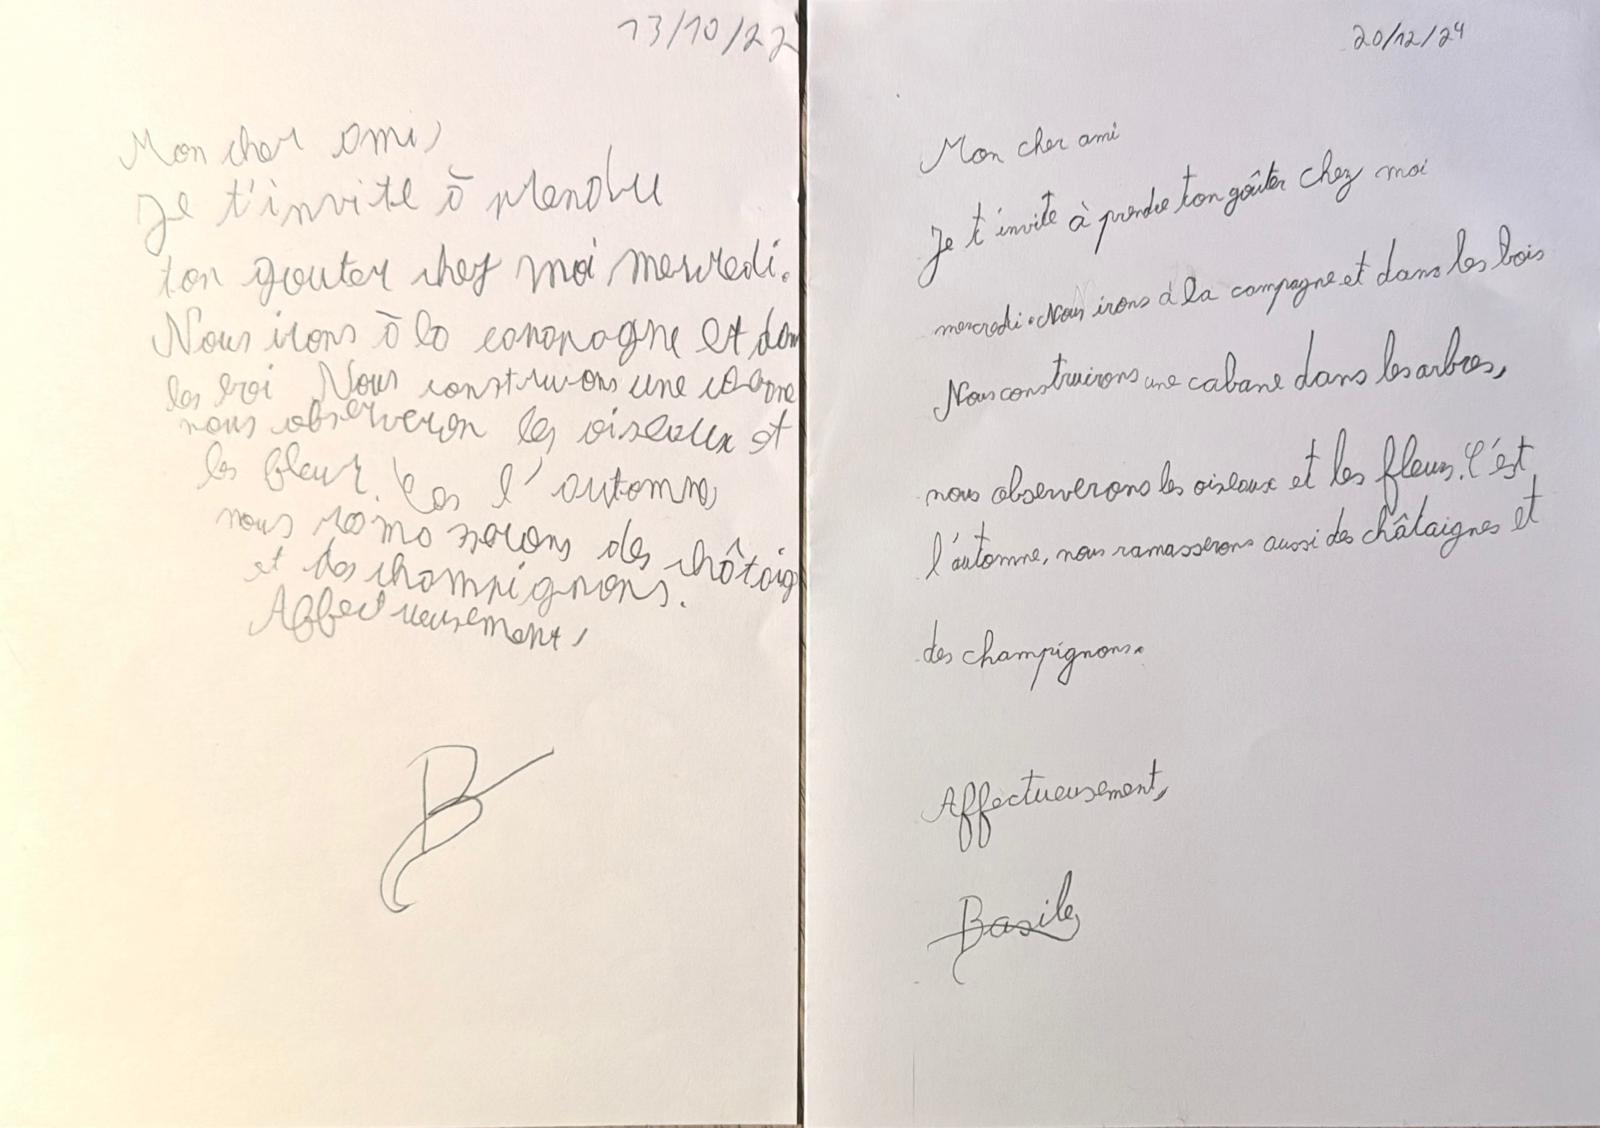 13/10/22
Mon cher ami,
Je t'invite à prendre
ton gouter chez moi mercredi.
Nous irons à la campagne et dans
les boi Nous construirons une cabane
nous observeron les oiseaux et
les fleur. l'automne,
nous ramasserons des châtaig
et des champignons.
Affectueusement,
B
20/12/24
Mon cher ami
Je t'invite à prendre ton goûter chez moi
mercredi. Nous irons à la campagne et dans les bois
Nous construirons une cabane dans les arbres,
nous observerons les oiseaux et les fleurs. C'est
l'automne, nous ramasserons aussi des châtaignes et
des champignons.
Affectueusement,
Basile